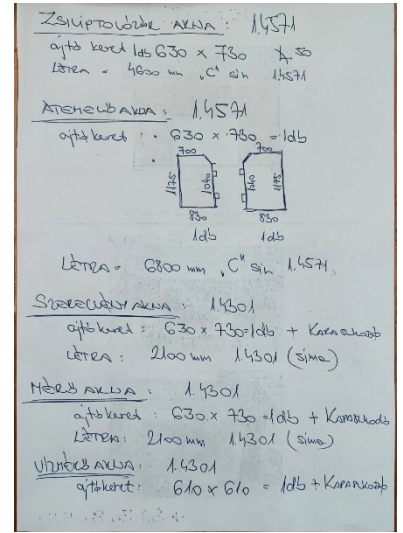 ZSILIPTOLÓZÁR AKNA: 1.4571
ajtó keret 1db 630 x 730 50
LÉTRA = 4600 mm "C" sin 1.4571
ÁTEMELŐ AKNA: 1.4571
ajtókeret: 630 x 730 = 1db
700 700
1175 1040 1040 1175
830 830
1db 1db
LÉTRA = 6800 mm "C" sin 1.4571.
SZERELVÉNY AKNA: 1.4301
ajtókeret: 630 x 730 = 1db + KAPASZKODÓ
LÉTRA: 2100 mm 1.4301 (sima)
MÉRŐ AKNA: 1.4301
ajtókeret: 630 x 730 = 1db + KAPASZKODÓ
LÉTRA: 2100 mm 1.4301 (sima)
VÍZMÉRŐ AKNA: 1.4301
ajtókeret: 610 x 610 = 1db + KAPASZKODÓ